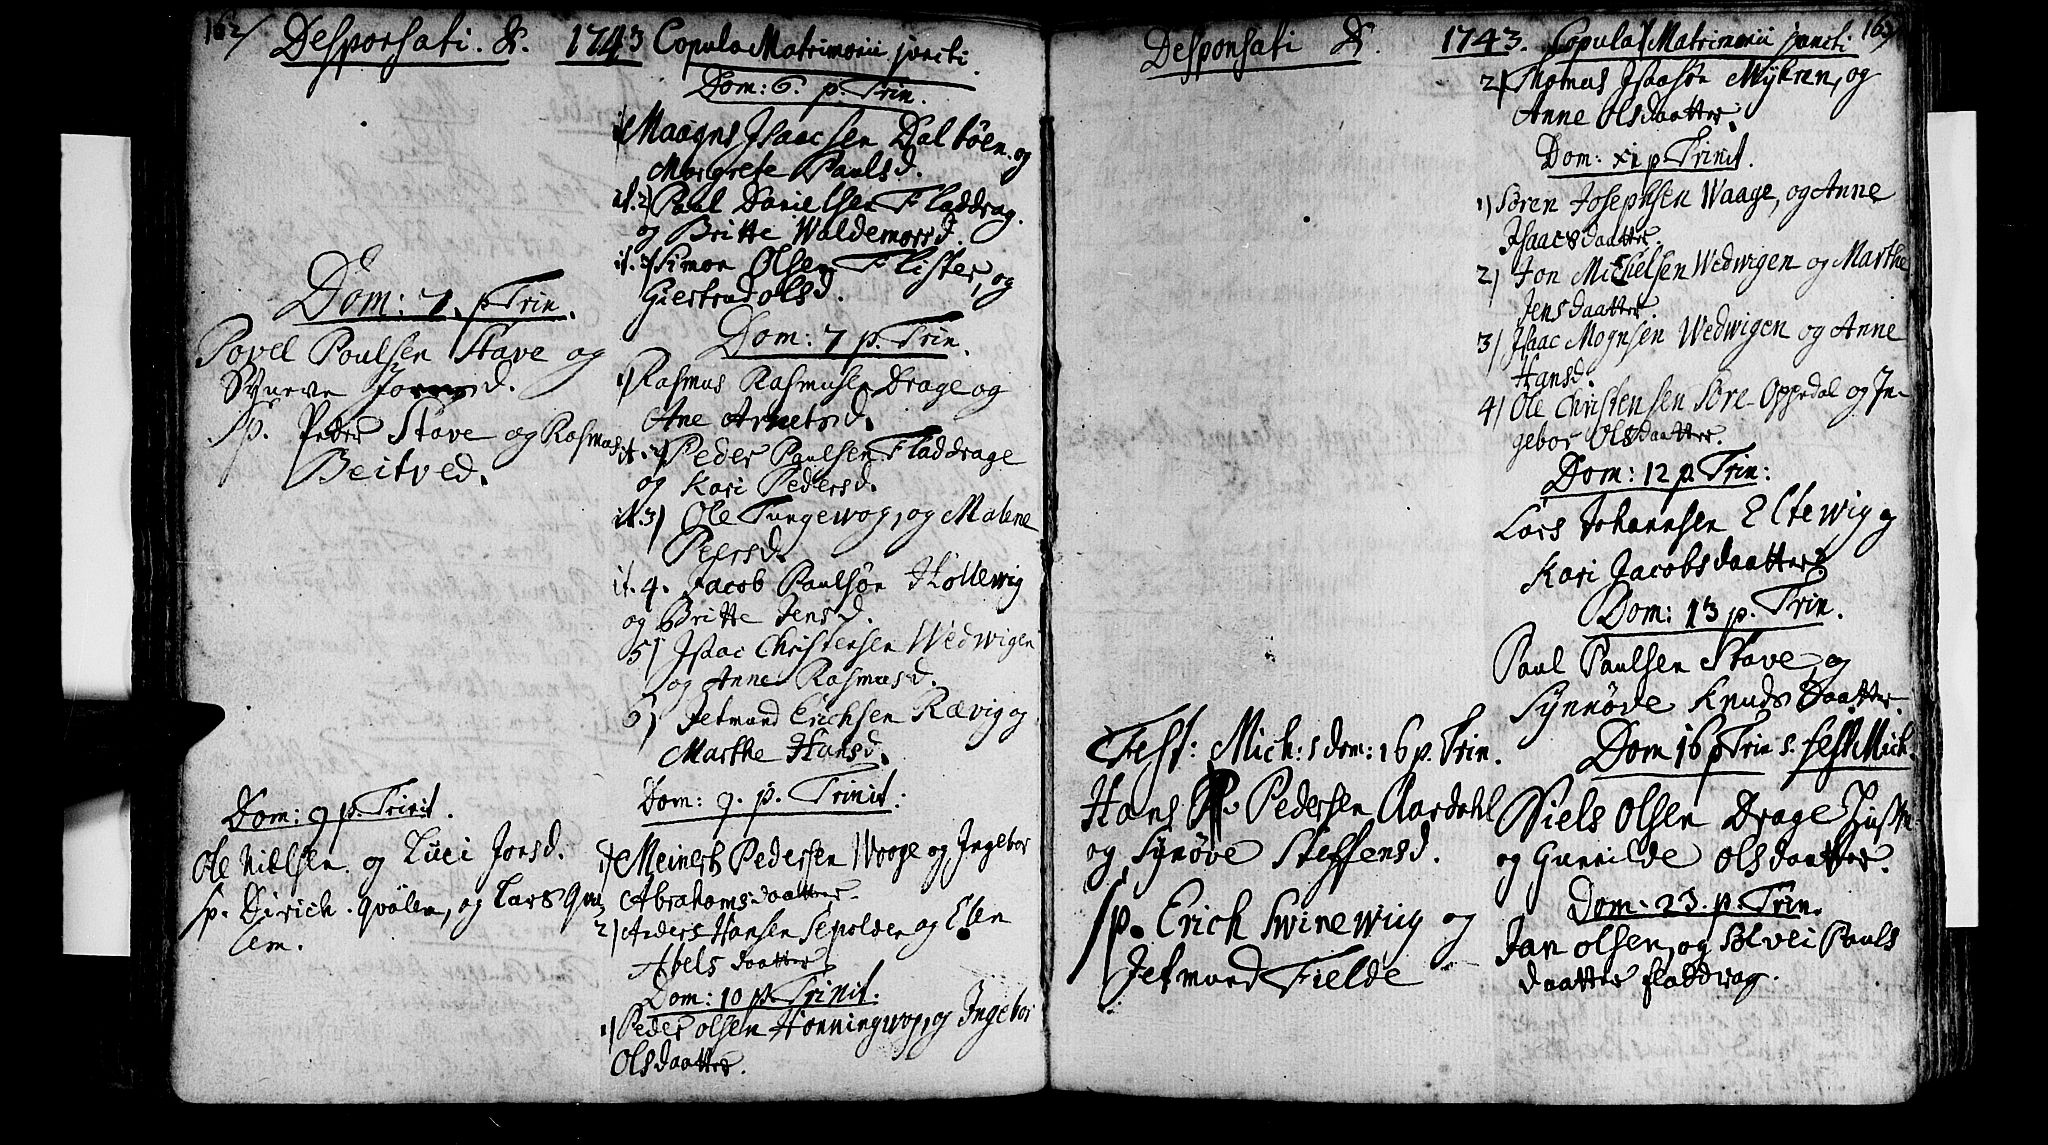 162/ Desponsati. &. 1743 Copula Matrimonii juncti.
Dom: 7. p Trin.
Povel Poulsen Stave og
Syneve d.
Sp. Peder Stave og Rasmus
Beitved.
Dom: 9 p. Trinit.
Ole Nielsen og Luci Jonsd.
sp. Dirich. qvölen, og Lars
lem.
Dom: 6. p. Trin.
1) Maagns Isaachsen Dalböen og
Margrete Paulsd.
it. 2) Paul Danielsen Fladdrag.
og Britte Waldemarsd.
it. 3) Simon Olsen Flister, og
Giertrud olsd.
Dom: 7 p. Trin.
1) Rasmus Rasmusen Drage og
Ane Arnetsd.
it. 2) Peder Paulsen Fladdrage
og Kari Pedersd.
it. 3) Ole Tungewog, og Malene
Peersd.
it. 4. Jacob Paulsön Hollewig
og Britte Jensd.
5) Isaac Christensen Wedwigen
og Anne Rasmusd.
6) Jetmund Erichsen Rævig og
Marthe Hansd.
Dom: 9. p. Trinit:
1) Meinert Pedersen Waage og Ingebor
Abrahams daatter
2) Anders Hansen Sepolden og Elen
Abels daatter
Dom: 10 p. Trinit.
1) Peder olsen Honningwog, og Ingebor
Olsdaatter.
Desponsati &. 1743. Copula Matrimonii juncti 163
Fest: Mich: s dom: 16 p. Trin.
Hans Pedersen Aardahl
og Synöve Steffensd.
sp. Erich Swinewiig og
Jetmund Fielde
2) Thomas Isaasön Myhren, og
Anne Olsdaatter.
Dom: xi p. Trinit.
1) Sören Josephsen Waage, og Anne
Isaacsdaatter
2) Jon Michelsen Wedwigen og Marthe
Jensdaatter.
3) Isaac Mognsen Wedwigen og Anne
Hansd.
4) Ole Christensen Söre Oppedal og In-
gebor Olsdaatter.
Dom: 12 p. Trin:
Lars Johannsen Eltewig og
Kari Jacobsdaatter
Dom: 13 p. Trin.
Paul Paulsen Stave, og
Synnöve Knuds Daatter.
Dom 16 p Trin s. fest Mich.
Niels Olsen Drage
og Gunnilde olsdaatter.
Dom: 23. p. Trin.
Jan olsen, og Solvei Pauls
daatter fladdrag.